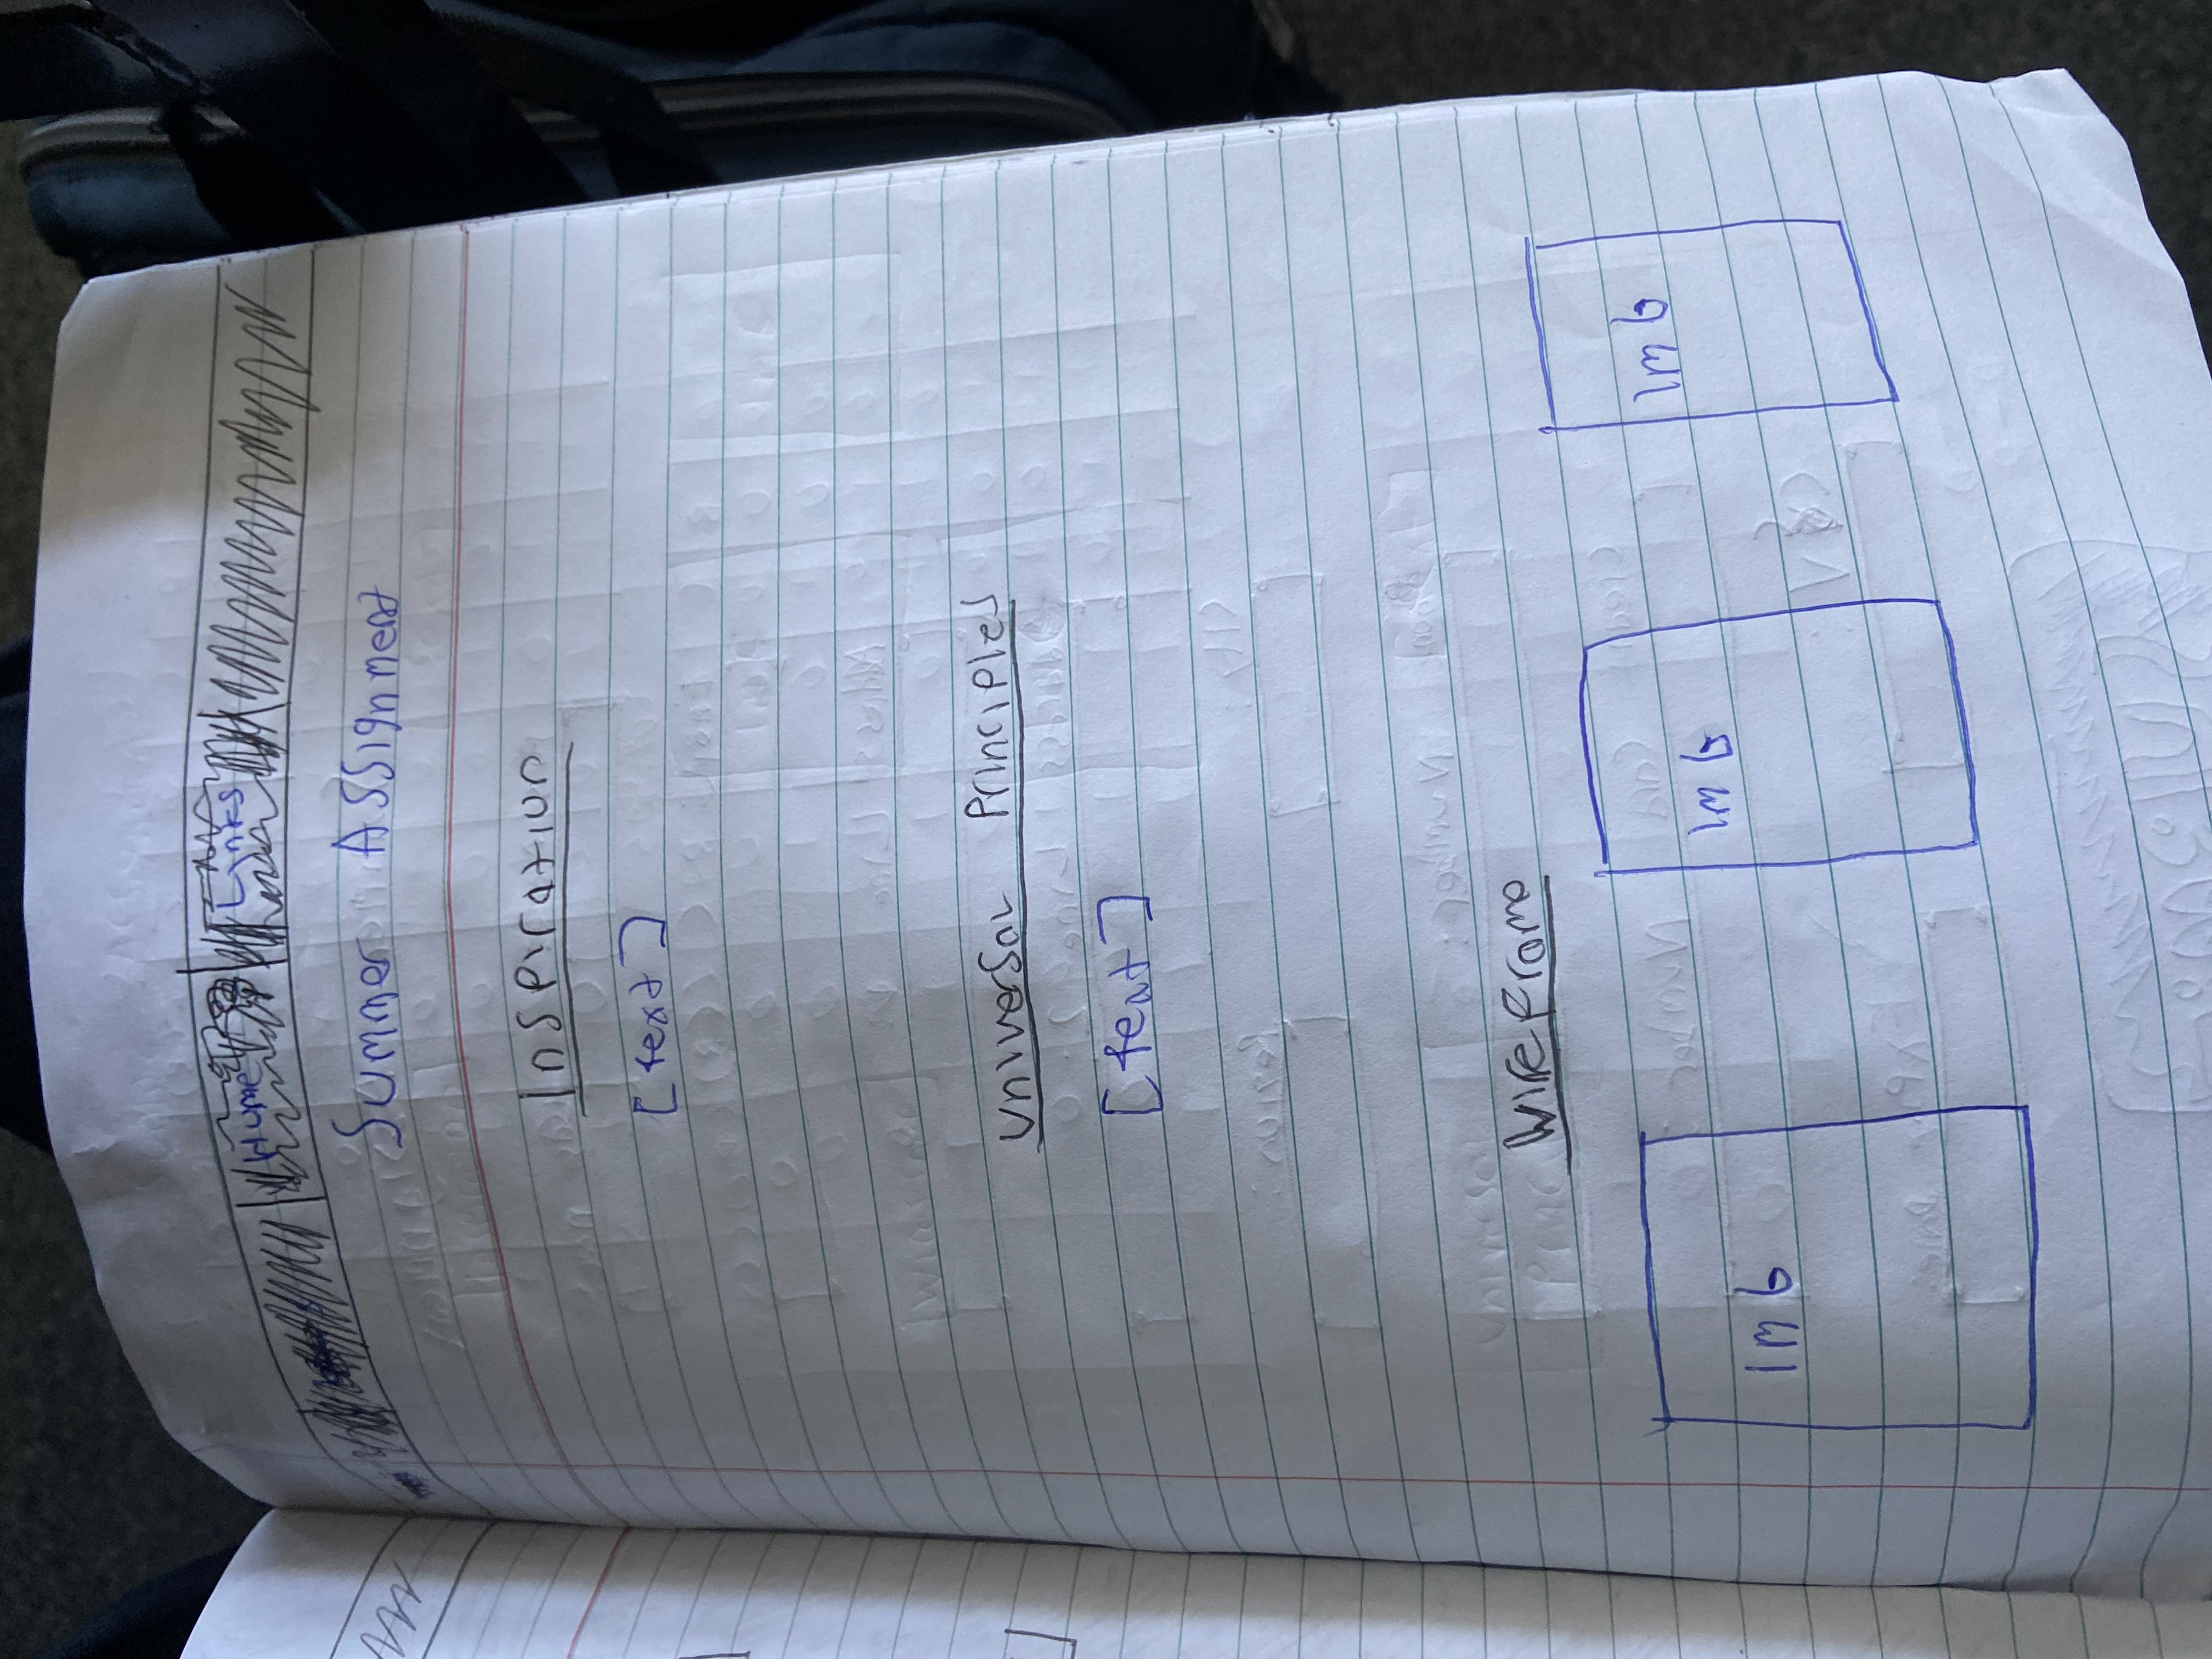 Home Links
Summer Assignment
Inspiration
[text]
Universal Principles
[text]
Wireframe
IMG IMG IMG